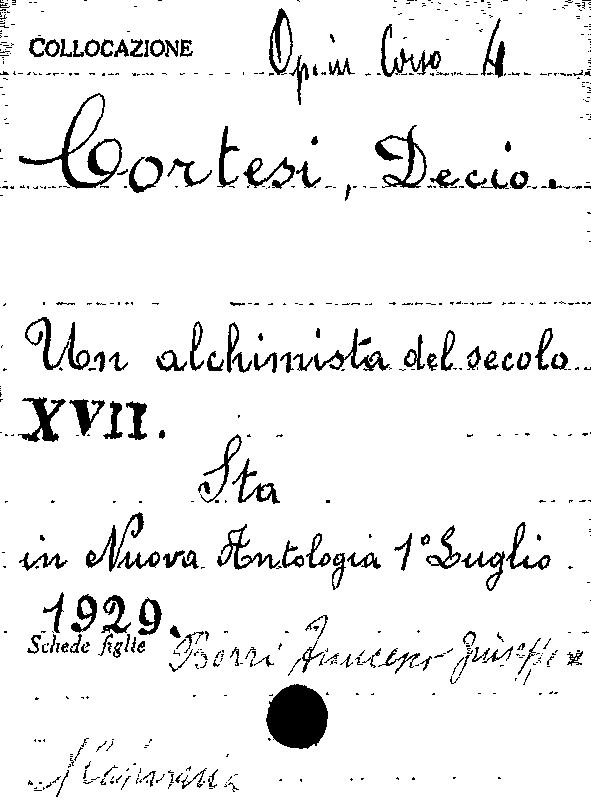 COLLOCAZIONE Op. in Corso 4
Cortesi, Decio.
Un alchimista del secolo
XVII.
Sta
in Nuova Antologia 1° Luglio
1929.
Schede figlie Borri Francesco Giuseppe